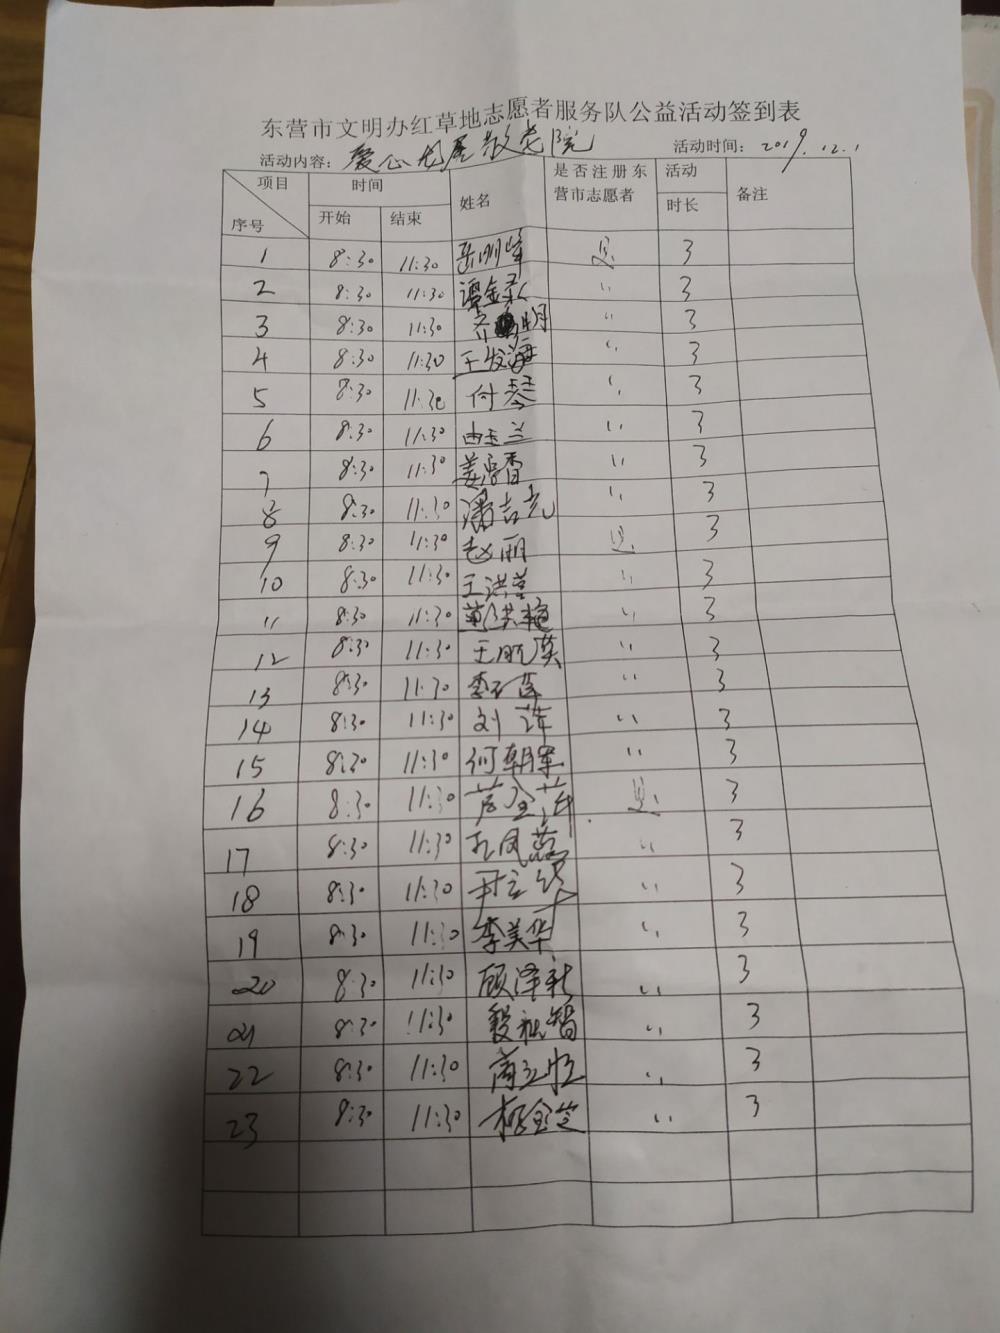 东营市文明办红草地志愿者服务队公益活动签到表
活动内容：爱心 敬老院 活动时间：2019.12.1
项目 时间 姓名 是否注册东 活动 备注
营市志愿者
序号 开始 结束 时长
1 8:30 11:30 岳明峰 是 3
2 8:30 11:30 谭金 〃 3
3 8:30 11:30 齐 明 〃 3
4 8:30 11:30 王发海 〃 3
5 8:30 11:30 付琴 〃 3
6 8:30 11:30 由玉兰 〃 3
7 8:30 11:30 姜 香 〃 3
8 8:30 11:30 潘吉 〃 3
9 8:30 11:30 赵丽 是 3
10 8:30 11:30 王洪 〃 3
11 8:30 11:30 洪梅 〃 3
12 8:30 11:30 王 英 〃 3
13 8:30 11:30 李 莲 〃 3
14 8:30 11:30 刘萍 〃 3
15 8:30 11:30 何朝军 〃 3
16 8:30 11:30 金萍 是 3
17 8:30 11:30 孔凤 〃 3
18 8:30 11:30 立 〃 3
19 8:30 11:30 李美华 〃 3
20 8:30 11:30 顾泽 〃 3
21 8:30 11:30 智 〃 3
22 8:30 11:30 〃 3
23 8:30 11:30 杨金芝 〃 3